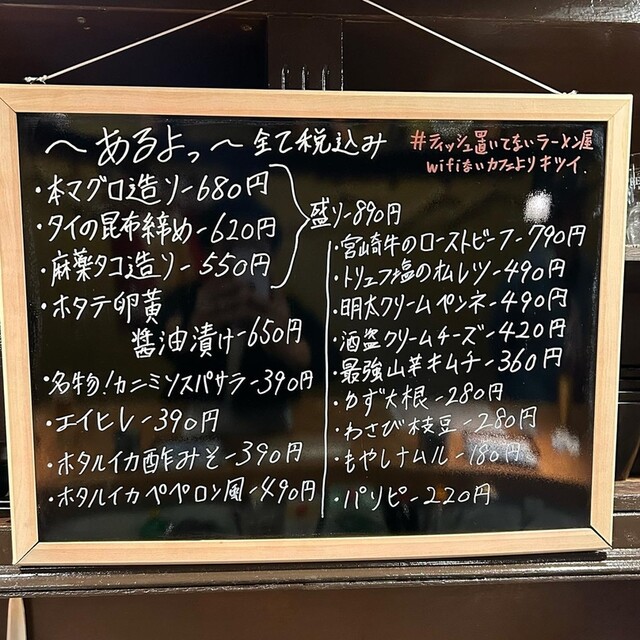 〜あるよっ〜全て税込み
#ティッシュ置いてないラーメン屋
wifiないカフェよりキツイ
・本マグロ造り-680円
・タイの昆布締め-620円
・麻薬タコ造り-550円
盛り-890円
・ホタテ卵黄
醤油漬け-650円
・名物!カニミソスパサラ-390円
・エイヒレ-390円
・ホタルイカ酢みそ-390円
・ホタルイカペペロン風-490円
・宮崎牛のローストビーフ-790円
・トリュフ塩のオムレツ-490円
・明太クリームペンネ-490円
・酒盗クリームチーズ-420円
・最強山芋キムチ-360円
・ゆず大根-280円
・わさび枝豆-280円
・もやしナムル-180円
・パリピ-220円